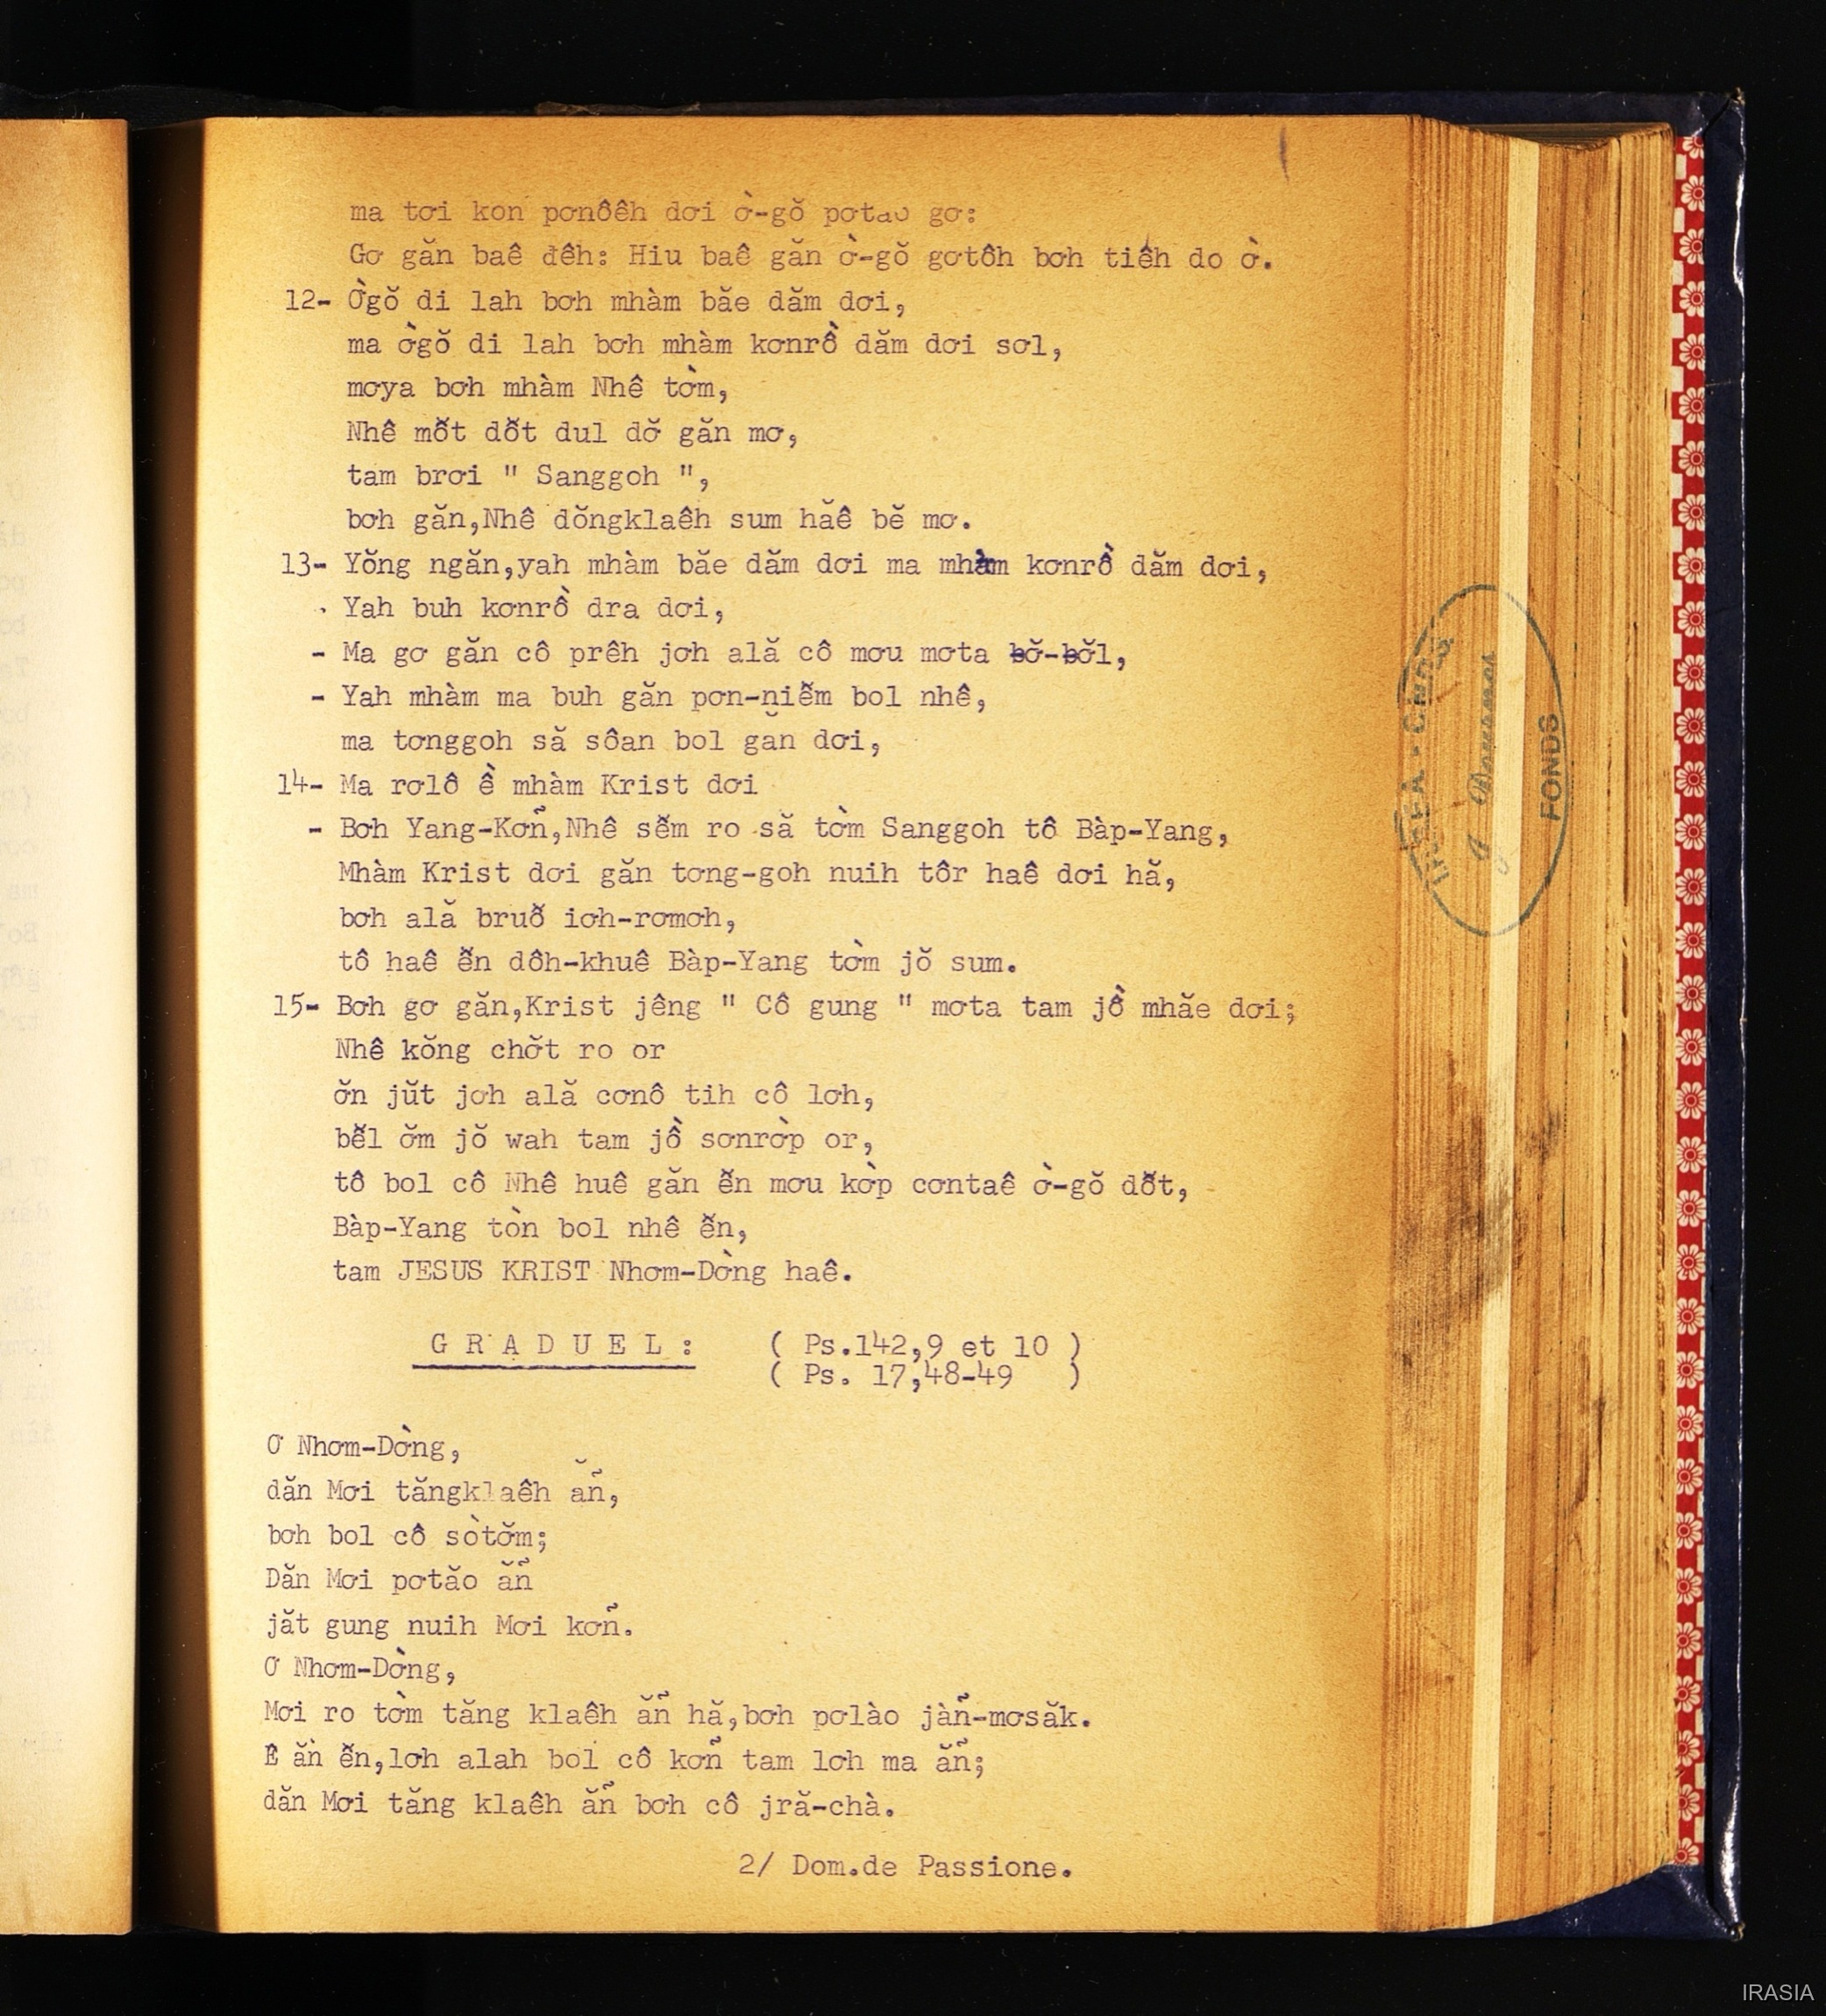 ma tơi kon pơnôêh dơi ờ-gŏ pơtao gơ:
Gơ găn baê đêh: Hiu baê găn ờ-gŏ gơtôh bơh tiêh do ờ.
12- Ờgŏ di lah bơh mhàm băe dăm dơi,
ma ờgŏ di lah bơh mhàm kơnrồ dăm dơi sơl,
mơya bơh mhàm Nhê tờm,
Nhê mô̆t dô̆t dul dơ̆ găn mơ,
tam brơi " Sanggoh ",
bơh găn,Nhê dŏngklaêh sum hăê bĕ mơ.
13- Yŏng ngăn,yah mhàm băe dăm dơi ma mhàm kơnrồ dăm dơi,
Yah buh kơnrồ dra dơi,
- Ma gơ găn cô prêh jơh ală cô mơu mơta bơ̆-bơ̆l,
- Yah mhàm ma buh găn pơn-niê̆m bol nhê,
ma tơnggoh să sôan bol găn dơi,
14- Ma rơlô ề mhàm Krist dơi
- Bơh Yang-Kơñ,Nhê sê̆m ro să tờm Sanggoh tô Bàp-Yang,
Mhàm Krist dơi găn tơng-goh nuih tôr haê dơi hă,
bơh ală bruô̆ iơh-rơmơh,
tô haê ê̆n dôh-khuê Bàp-Yang tờm jŏ sum.
15- Bơh gơ găn,Krist jêng " Cô gung " mơta tam jồ mhăe dơi;
Nhê kŏng chơ̆t ro or
ơ̆n jŭt jơh ală cơnô tih cô lơh,
bê̆l ơ̆m jŏ wah tam jồ sơnrờp or,
tô bol cô Nhê huê găn ê̆n mơu kờp cơntaê ờ-gŏ dô̆t,
Bàp-Yang tòn bol nhê ê̆n,
tam JESUS KRIST Nhơm-Dờng haê.
G R A D U E L : ( Ps.142,9 et 10 )
( Ps. 17,48-49 )
Ơ Nhơm-Dờng,
dăn Mơi tăngklaêh ăñ,
bơh bol cô sòtơ̆m;
Dăn Mơi pơtăo ăñ
jăt gung nuih Mơi kơñ.
Ơ Nhơm-Dờng,
Mơi ro tờm tăng klaêh ăñ hă,bơh pơlào jàñ-mơsăk.
Ê ăǹ ê̆n,lơh alah bol cô kơñ tam lơh ma ăñ;
dăn Mơi tăng klaêh ăñ bơh cô jră-chà.
2/ Dom.de Passione.
FONDS
IRASIA